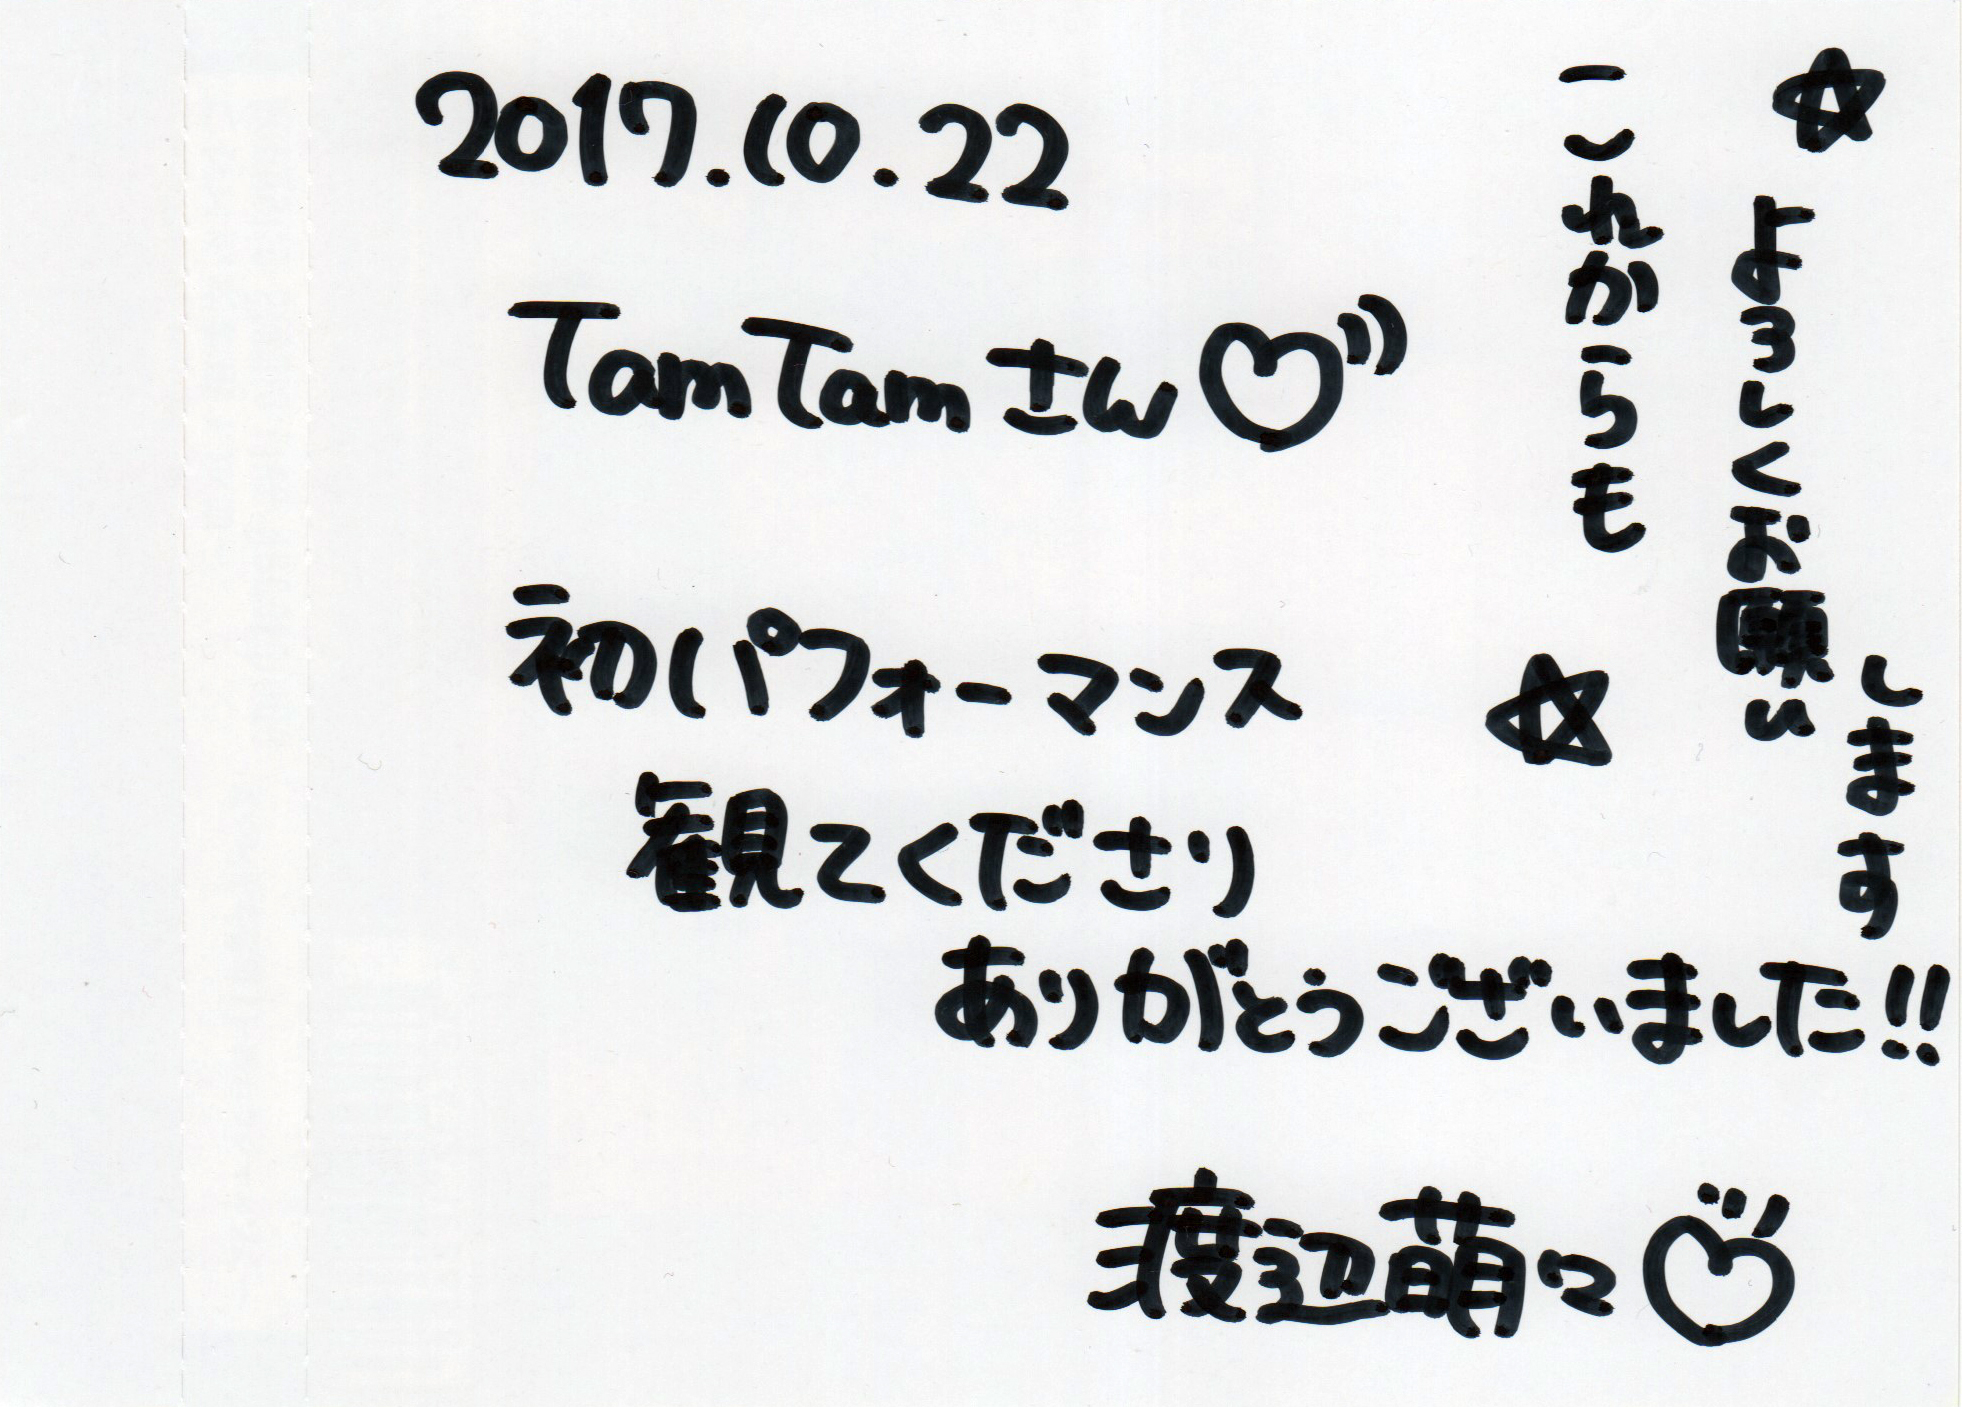 2017.10.22
TamTamさん♡
初パフォーマンス
観てくださり
ありがとうございました!!
☆これからも
よろしくお願い
します☆
渡辺萌々♡